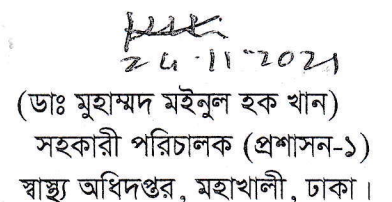 24.11.2021
(ডাঃ মুহাম্মদ মইনুল হক খান)
সহকারী পরিচালক (প্রশাসন-১)
স্বাস্থ্য অধিদপ্তর, মহাখালী, ঢাকা।